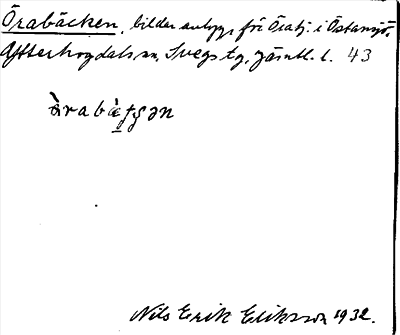 Örabäcken, bildar avlopp för Öratj. i Östansjö,
Ytterhogdals sn, Svegs tg, Jämtl. l. 43
ärabätʃən
Nils Erik Eriksson 1932.